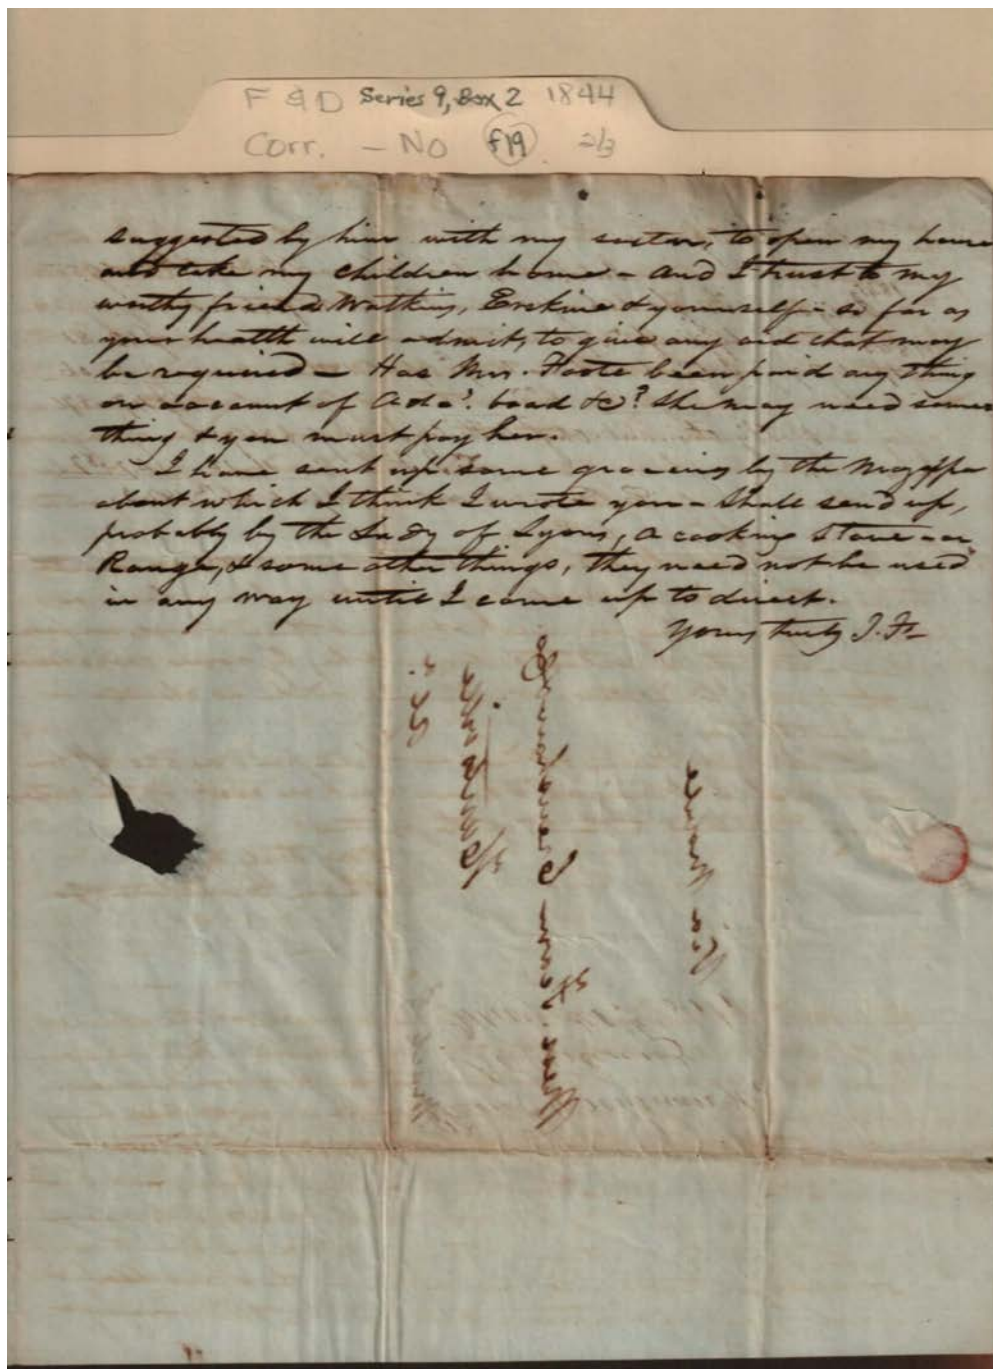 F & D Series 9, Box 2 1844
Corr. - No f19 2/3
suggested by him with my sister, to open my house
and take my children home - and I trust to my
worthy friend Watkins, Erskine & yourself - so far as
your health will admit, to give any aid that may
be required - Has Mrs. Foote been paid any thing
on account of Ada's. board &c? She may need some
thing & you must pay her.
I have sent up some groceries by the Mazeppa
about which I think I wrote you - Shall send up,
probably by the Lady of Lyons, a cooking Stove - or
Range, & some other things, they need not be used
in any way until I come up to direct.
Yours truly J. F-